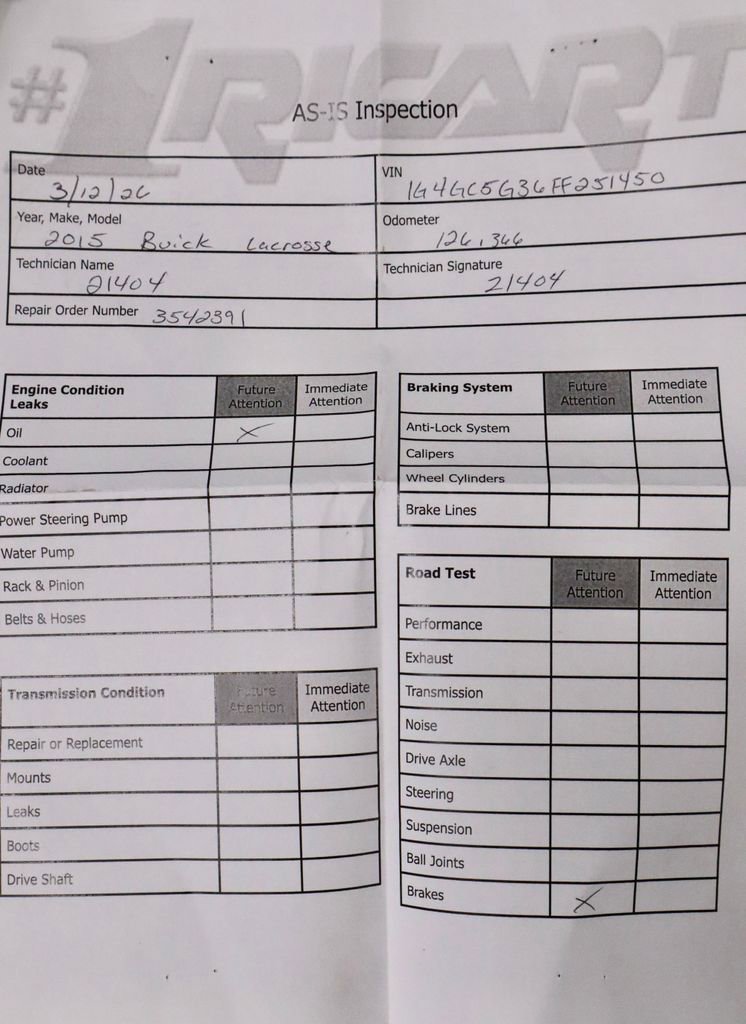 #1 RICART
AS-IS Inspection
Date 3/12/26
VIN 1G4GC5G36FF251450
Year, Make, Model 2015 Buick Lacrosse
Odometer 126,366
Technician Name 21404
Technician Signature 21404
Repair Order Number 3542391
Engine Condition Leaks
Future Attention
Immediate Attention
Oil X
Coolant
Radiator
Power Steering Pump
Water Pump
Rack & Pinion
Belts & Hoses
Transmission Condition
Future Attention
Immediate Attention
Repair or Replacement
Mounts
Leaks
Boots
Drive Shaft
Braking System
Future Attention
Immediate Attention
Anti-Lock System
Calipers
Wheel Cylinders
Brake Lines
Road Test
Future Attention
Immediate Attention
Performance
Exhaust
Transmission
Noise
Drive Axle
Steering
Suspension
Ball Joints
Brakes X